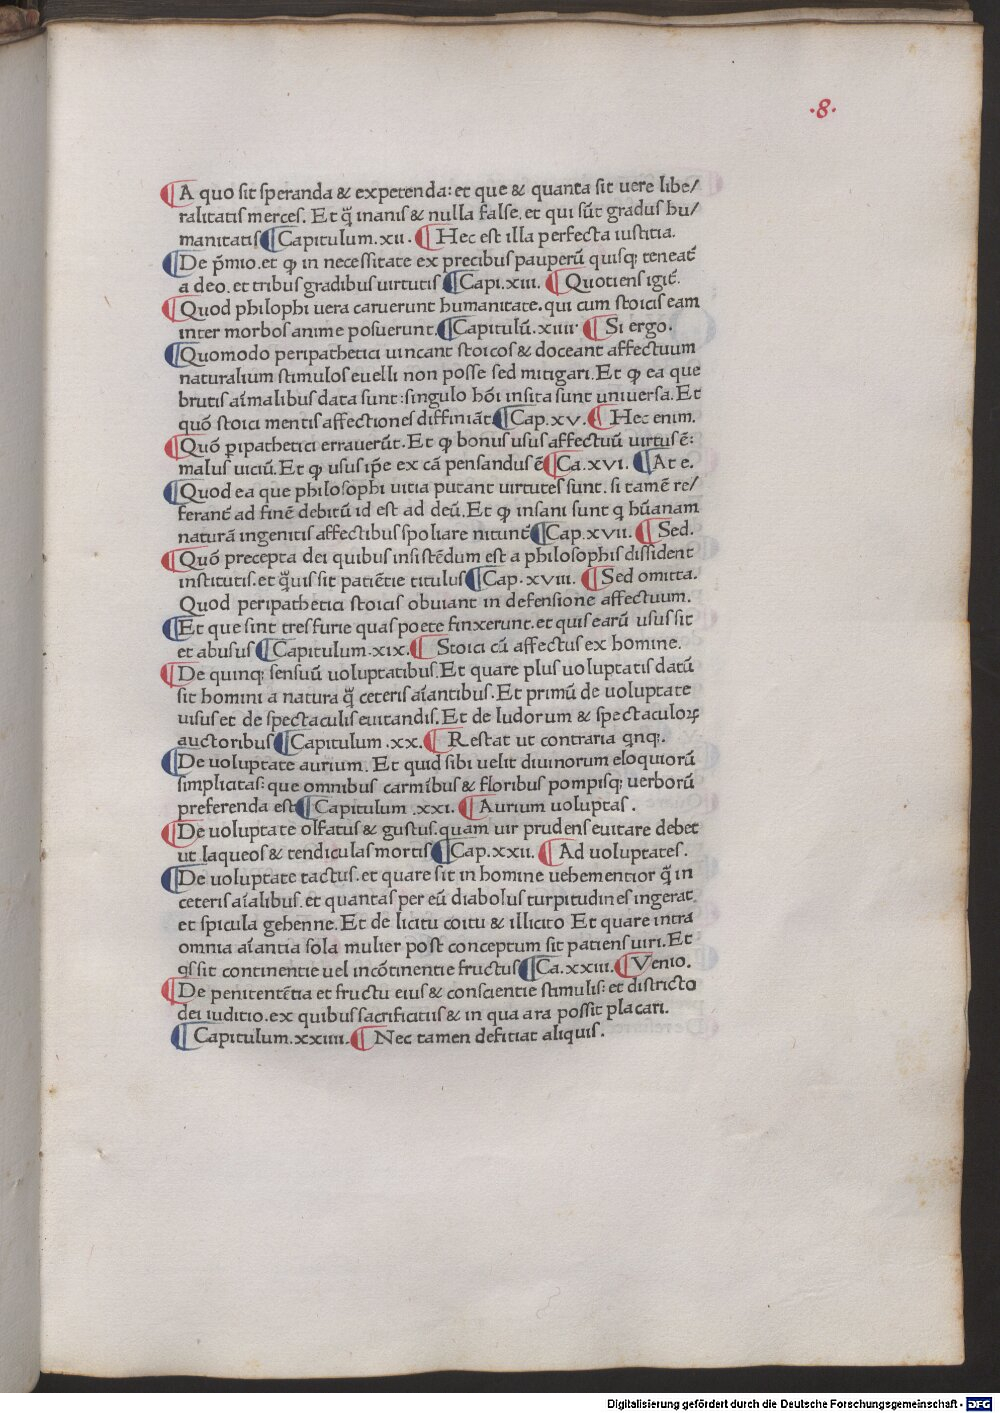 ·8·
¶A quo sit speranda & expetenda: et que & quanta sit uere libe/
ralitatis merces. Et q̃ inanis & nulla false. et qui sũt gradus hu/
manitatis ¶Capitulum.xii. ¶Hec est illa perfecta iustitia.
¶De p̃mio.et ꝙ in necessitate ex precibus pauperũ quisq; teneat̃
a deo. et tribus gradibus uirtutis ¶Capi.xiii. ¶Quotiens igit̃.
¶Quod philophi uera caruerunt humanitate. qui cum stoicis eam
inter morbos anime posuerunt. ¶Capitulũ.xiiii· ¶Si ergo.
¶Quomodo peripathetici uincant stoicos & doceant affectuum
naturalium stimulos euelli non posse sed mitigari. Et ꝙ ea que
brutis aĩmalibus data sunt: singulo hõi insita sunt uniuersa. Et
quõ stoici mentis affectiones diffiniãt ¶Cap.xv. ¶Hec enim.
¶Quõ ꝑipathetici errauerũt. Et ꝙ bonus usus affectuũ uirtus ẽ:
malus uiciũ. Et ꝙ usus ip̃e ex cã pensandus ẽ ¶Ca.xvi. ¶At e.
¶Quod ea que philosophi uitia putant uirtutes sunt. si tamẽ re/
ferant̃ ad finẽ debitũ id est ad deũ. Et ꝙ insani sunt q hũanam
naturã ingenitis affectibus spoliare nitunt̃ ¶Cap.xvii. ¶Sed.
¶Quõ precepta dei quibus insistẽdum est a philosophis dissident
institutis. et q̃uis sit patiẽtie titulus ¶Cap.xviii. ¶Sed omitta.
Quod peripathetici stoicis obuiant in defensione affectuum.
¶Et que sint tres furie quas poete finxerunt. et quis earũ usus sit
et abusus ¶Capitulum.xix. ¶Stoici cũ affectus ex homine.
¶De quinq; sensuũ uoluptatibus. Et quare plus uoluptatis datũ
sit homini a natura q̃ ceteris aĩantibus. Et primũ de uoluptate
uisus et de spectaculis euitandis. Et de ludorum & spectaculoꝝ
auctoribus ¶Capitulum.xx. ¶Restat ut contraria qnq;.
¶De uoluptate aurium. Et quid sibi uelit diuinorum eloquiorũ
simplicitas: que omnibus carmĩbus & floribus pompisq; uerborũ
preferenda est ¶Capitulum.xxi. ¶Aurium uoluptas.
¶De uoluptate olfatus & gustus. quam uir prudens euitare debet
ut laqueos & tendiculas mortis ¶Cap.xxii. ¶Ad uoluptates.
¶De uoluptate tactus. et quare sit in homine uehementior q̃ in
ceteris aĩalibus. et quantas per eũ diabolus turpitudines ingerat.
et spicula gehenne. Et de licitu coitu & illicito Et quare intra
omnia aĩantia sola mulier post conceptum sit patiens uiri. Et
qs sit continentie uel incõtinentie fructus ¶Ca.xxiii. ¶Venio.
¶De penitentẽtia et fructu eius & conscientie stimulis: et districto
dei iuditio. ex quibus sacrificitiis & in qua ara possit placari.
¶Capitulum.xxiiii. ¶Nec tamen defitiat aliquis.
Digitalisierung gefördert durch die Deutsche Forschungsgemeinschaft - DFG